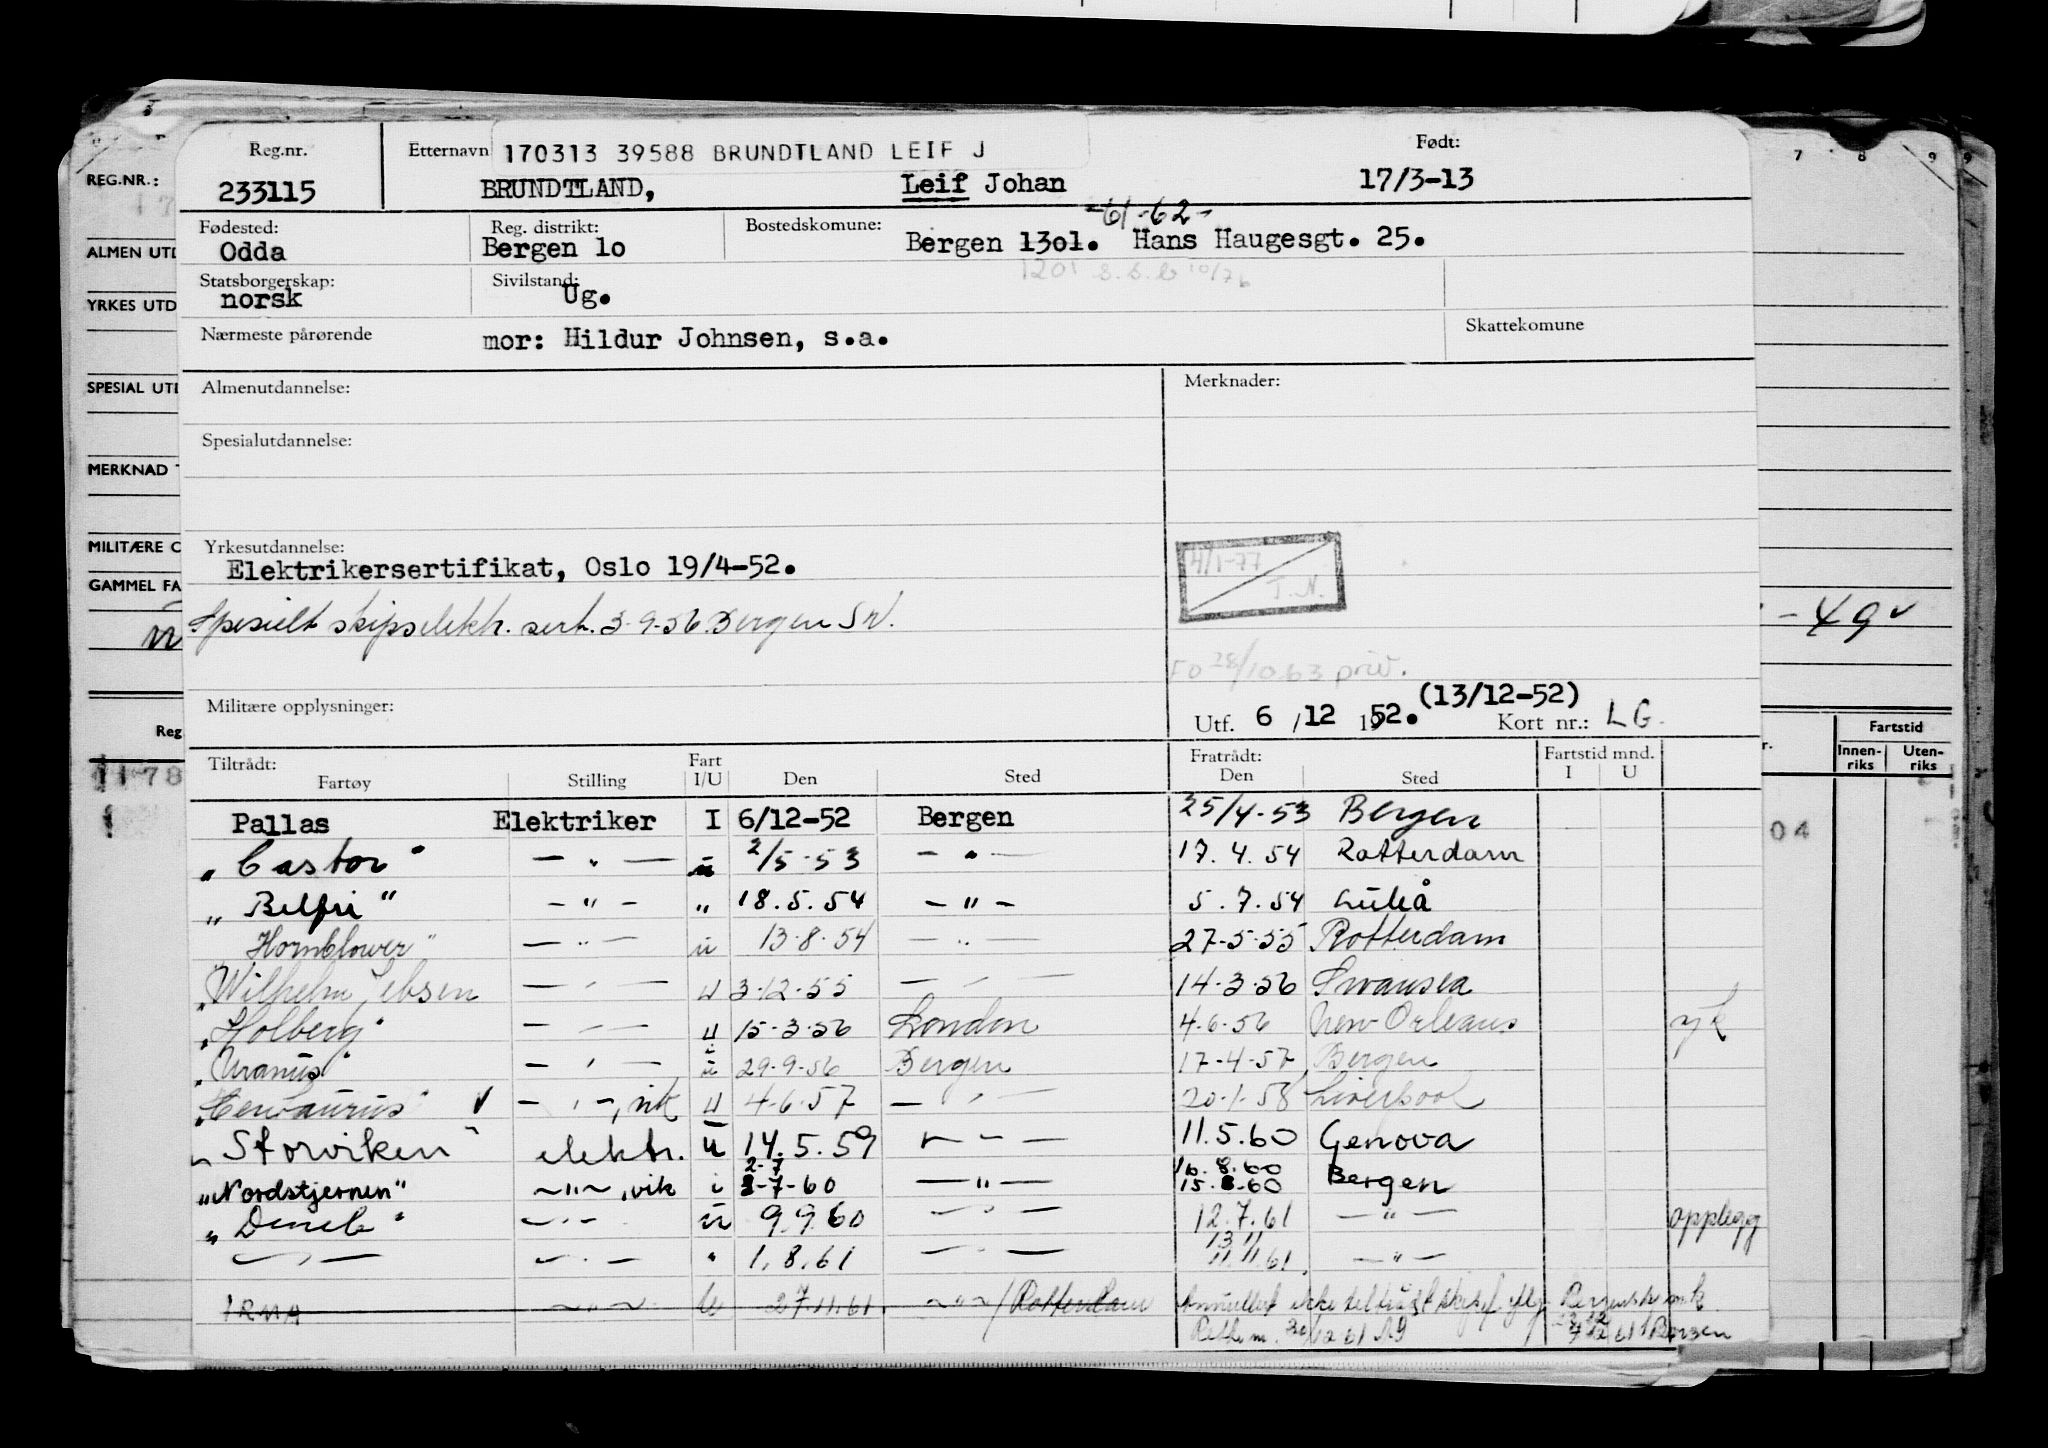 Reg.nr. Etternavn 170313 39588 BRUNDTLAND LEIF J Født:
233115 BRUNDTLAND, Leif Johan 17/3-13
-61-62-
Fødested: Reg. distrikt: Bostedskomune:
Odda Bergen 1o Bergen 13o1. Hans Haugesgt. 25.
1201 s.s.b 10/76
Statsborgerskap: Sivilstand:
norsk Ug.
Nærmeste pårørende mor: Hildur Johnsen, s.a. Skattekomune
Almenutdannelse: Merknader:
Spesialutdannelse:
Yrkesutdannelse:
Elektrikersertifikat, Oslo 19/4-52.
4/1-77
T.N.
Spesielt skipselektr. sert. 3-9-56 Bergen
FO 28/10.63 priv.
Militære opplysninger: Utf. 6 / 12 1952. (13/12-52) Kort nr.: LG.
Tiltrådt: Fart Fratrådt: Fartstid mnd.
Fartøy Stilling I/U Den Sted Den Sted I U
Pallas Elektriker I 6/12-52 Bergen 25/4-53 Bergen
"Castor" — " — u 2/5-53 — " — 17.4.54 Rotterdam
"Belfri" — " — " 18.5.54 — " — 5.7.54 Luleå
Hornblower" — " — u 13-8-54 — " — 27-5-55 Rotterdam
"Wilhelm Jebsen — " — U 3-12-55 — " — 14-3-56 Swansea
"Holberg" — " — U 15-3-56 London 4-6-56 New Orleans syk
"Uranus" — " — u 29-9-56 Bergen 17-4-57 Bergen
"Centaurus" V — " —, vik U 4-6-57 — " — 20-1-58 Liverpool
"Storviken" elektr. u 14.5.59 — " — 11.5.60 Genova
2-7 16.8.60
"Nordstjernen" — " —, vik i 1-7-60 — " — 15.8.60 Bergen
"Deneb" — " — u 9.9.60 — " — 12.7.61 — " — opplegg
13 11
— " — — " — " 1.8.61 — " — 11.11.61. — " —
IRMA — " — U 27.11.61 — " — / Rotterdam Annullert ikke tiltrådt skipet iflg.
61 Bergen
REG.NR.:
ALMEN UTD
YRKES UTD
SPESIAL UTD
MERKNAD
MILITÆRE O
GAMMEL FA
Reg
1178
7 8 9
- 49 v
Fartstid
Innenriks Utenriks
04